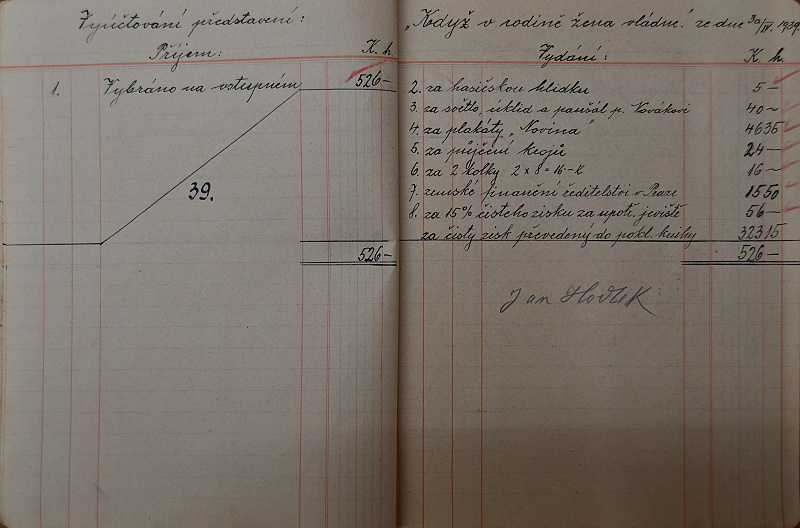 Vyúčtování představení:
Příjem: K. h.
1. Vybráno na vstupném 526 –
39.
526 –
„Když v rodině žena vládne." ze dne 30/IV. 1939.
Vydání: K h.
2. za hasičskou hlídku 5 –
3. za světlo, úklid a paušál p. Novákovi 40 –
4. za plakáty „Novina" 46 35
5. za půjčení krojů 24 –
6. za 2 kolky 2 x 8 = 16 – K 16 –
7. zemské finanční ředitelství v Praze 15 50
8. za 15% čistého zisku za upotř. jeviště 56 –
za čistý zisk převedený do pokl. knihy 323 15
526 –
Jan